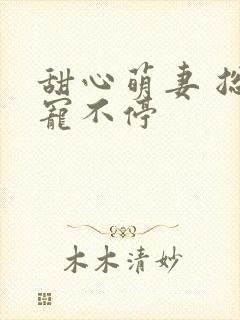 甜心萌妻
寵不停
木木清妙